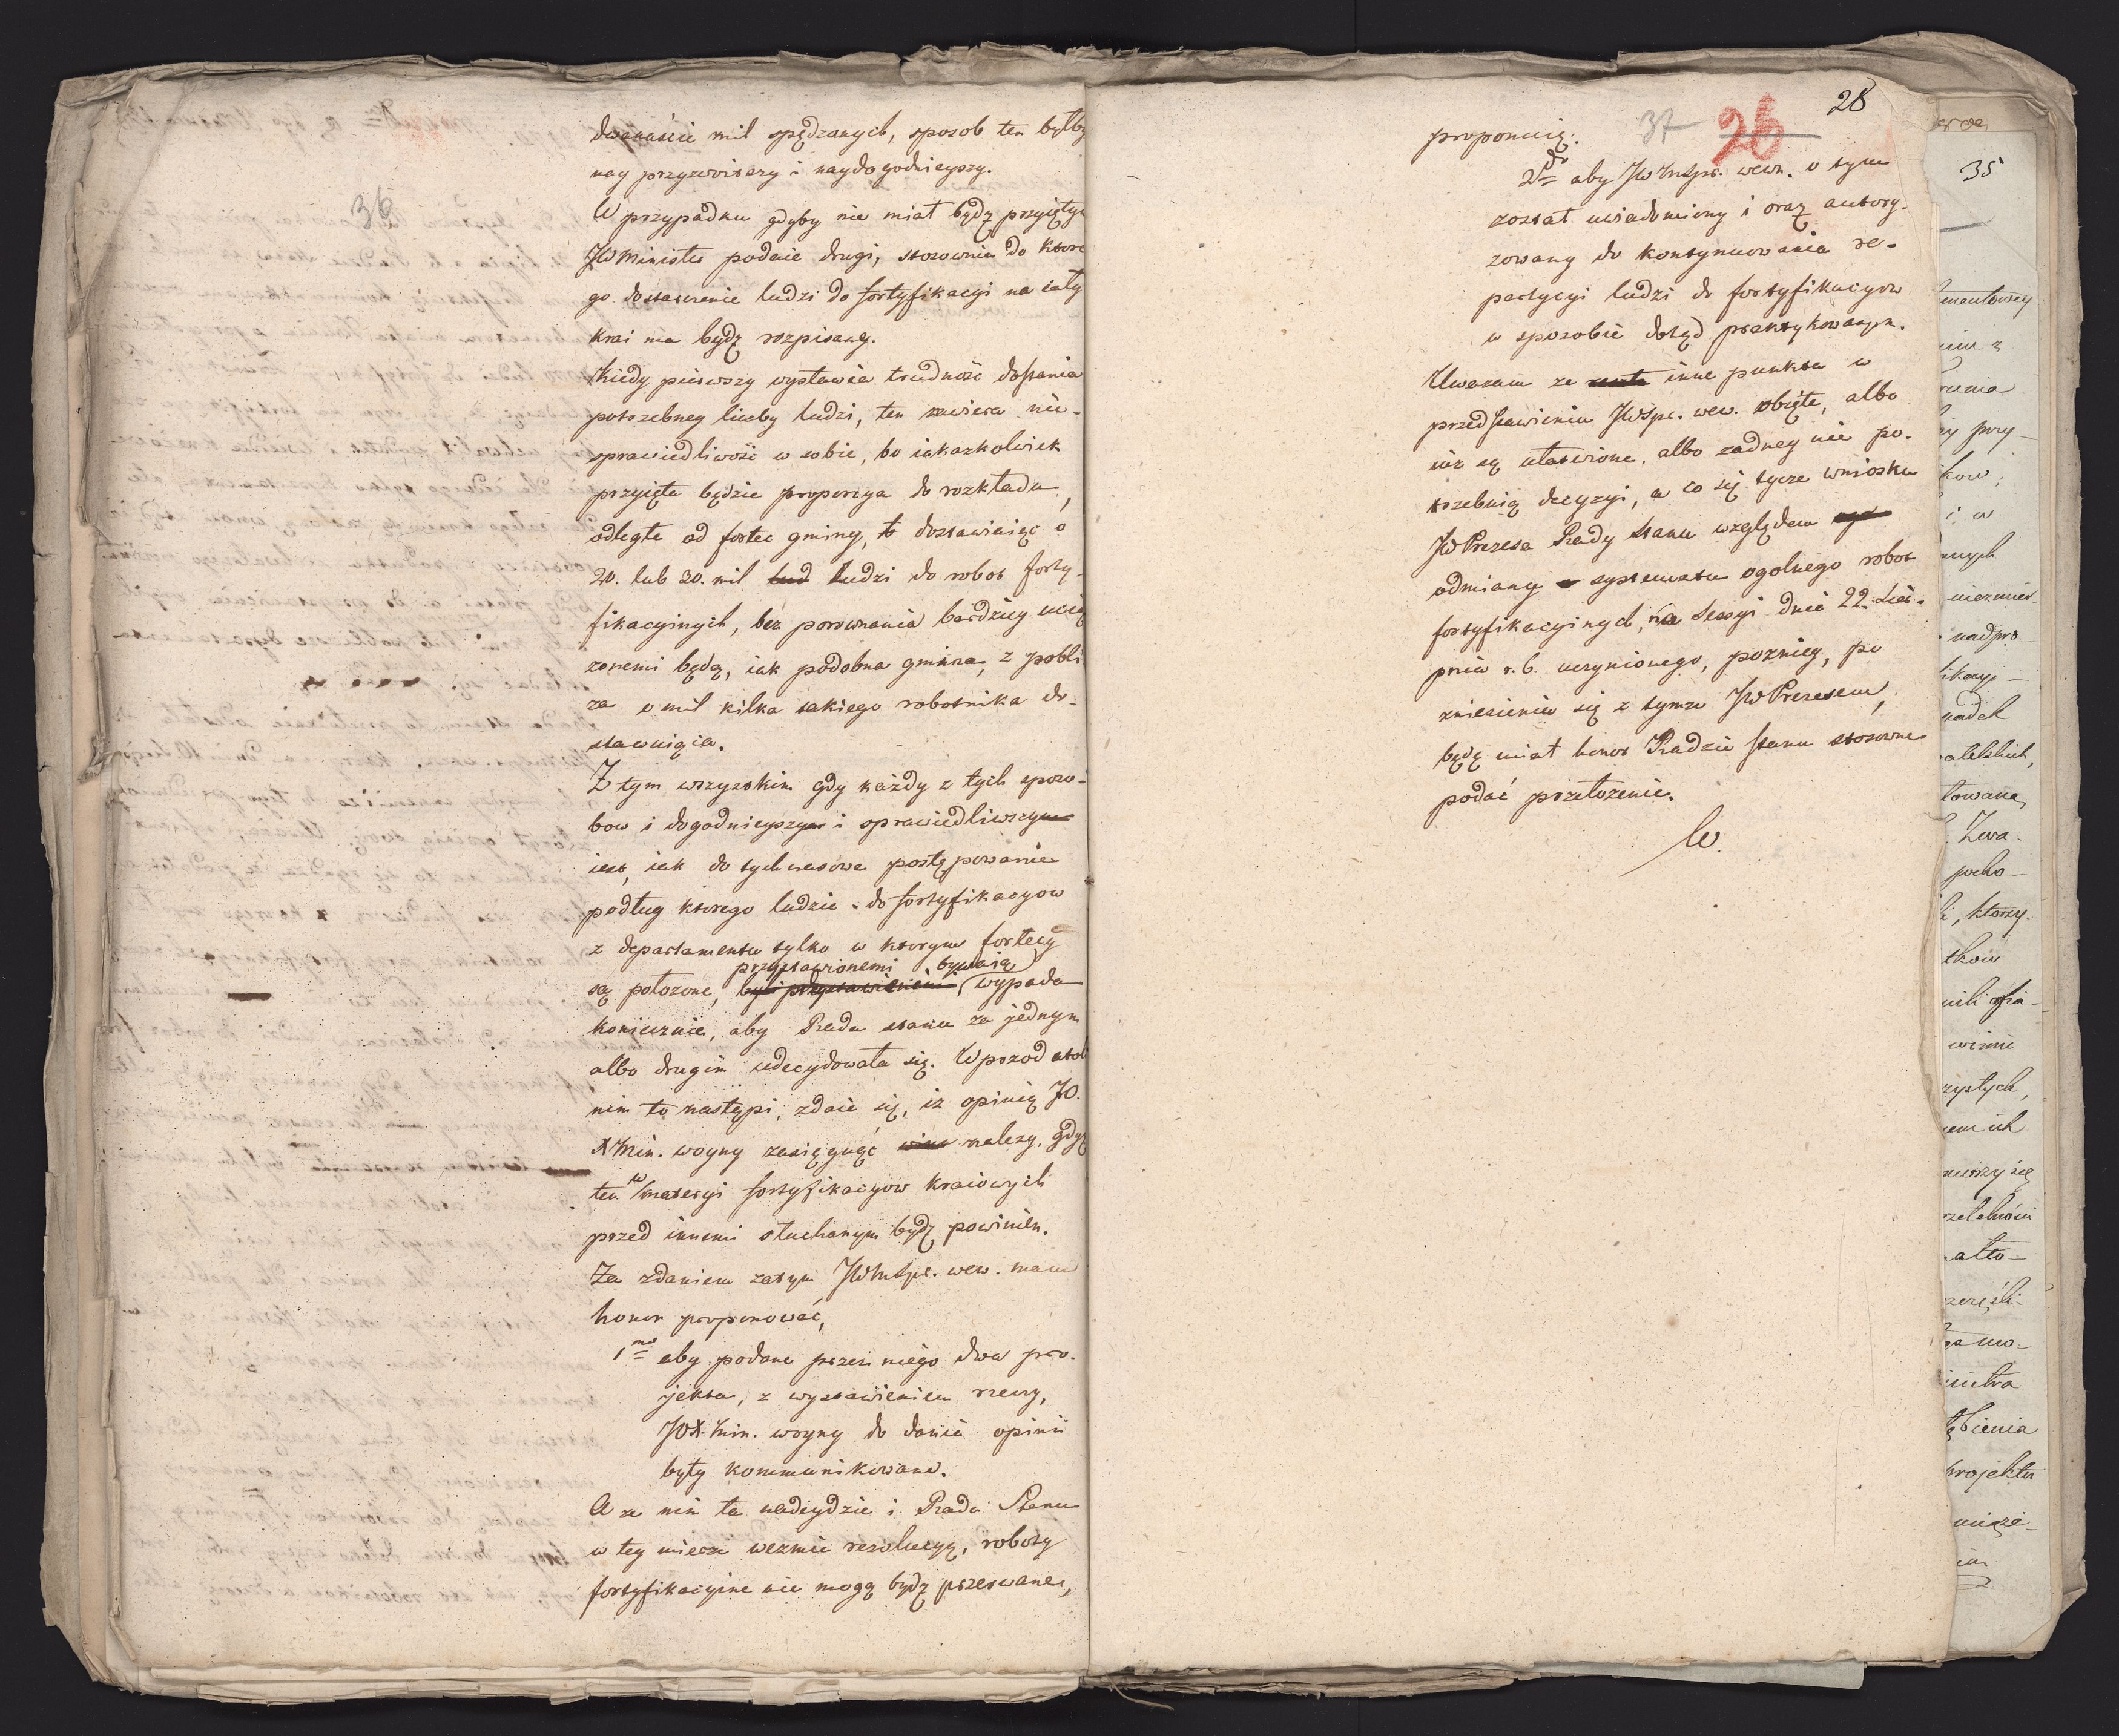 36
dwanaście mil spędzanych, sposob ten byłby
nay przyzwoitszy i naydogodnieyszy.
W przypadku gdyby nie miał będz przyiętym
JW Minister podaie drugi, stosownie do ktore
go dostawienie ludzi do fortyfikacyi na cały
kray ma będz rozpisany.
Kiedy pierwszy wystawia trudność dostania
potrzebney liczby ludzi, ten zawiera nie-
sprawiedliwość w sobie, bo iakazkolwiek
przyięta będzie proporcya do rozkładu,
odległe od fortec gminy, to dostawiaiąc o
20. lub 30. mil lud ludzi do robot forty-
fikacyinych, bez porownania bardziey ucią
zonemi będą, iak podobna gmina, z pobli
za o mil kilka takiego robotnika do-
stawuiąca.
Z tym wszystkim gdy każdy z tych sposo-
bow i dogodnieyszym i sprawiedliwszym
iest, iak do tychczasowe postępowanie
podług ktorego ludzie do fortyfikacyow
z departamentu tylko w ktorym fortecy
przystawionemi bywaią
są położone, byli przystawieniemi, wypada
koniecznie, aby Rada stanu za jednym
albo drugim udecydowała się. Wprzod atoli
nim to nastąpi, zdaie się, iż opinią JO.
X Min. woyny zasięgnąć winna nalezy, gdyż
ten w materyi fortyfikacyow kraiowych
przed innemi słuchanym bydz powinien.
Za zdaniem zatym JW Mtra. wew. mam
honor proponować,
1mo aby podane przez niego dwa pro-
jekta, z wystawieniem rzeczy,
JOX. Min. woyny do dania opinii
były kommunikowane.
A ze nim ta nadeydzie i Rada Stanu
w tey mierze weźmie rezolucyą, roboty
fortyfikacyine nie mogą bydz przerwane,
37 26 28
proponuię.
2do aby JW Mtra. wewn. o tym
został uwiadomiony i oraz autory-
zowany do kontynuowania re-
partycyi ludzi do fortyfikacyow
w sposobie dotąd praktykowanym.
Uwazam ze inne punkta w
przedstawieniu JW wew. obięte, albo
iuż są ułatwione, albo zadney nie po-
trzebuią decyzyi, a co się tycze wniosku
JW Prezesa Rady stanu względem
odmiany systematu ogolnego robot
fortyfikacyinych, na Sessyi dnia 22. Sier-
pnia r. b. uczynionego, pozniey, po
zniesieniu się z tymze JW Prezesem,
będę miał honor Radzie stanu stosowne
podać przełożenie.
W.
35